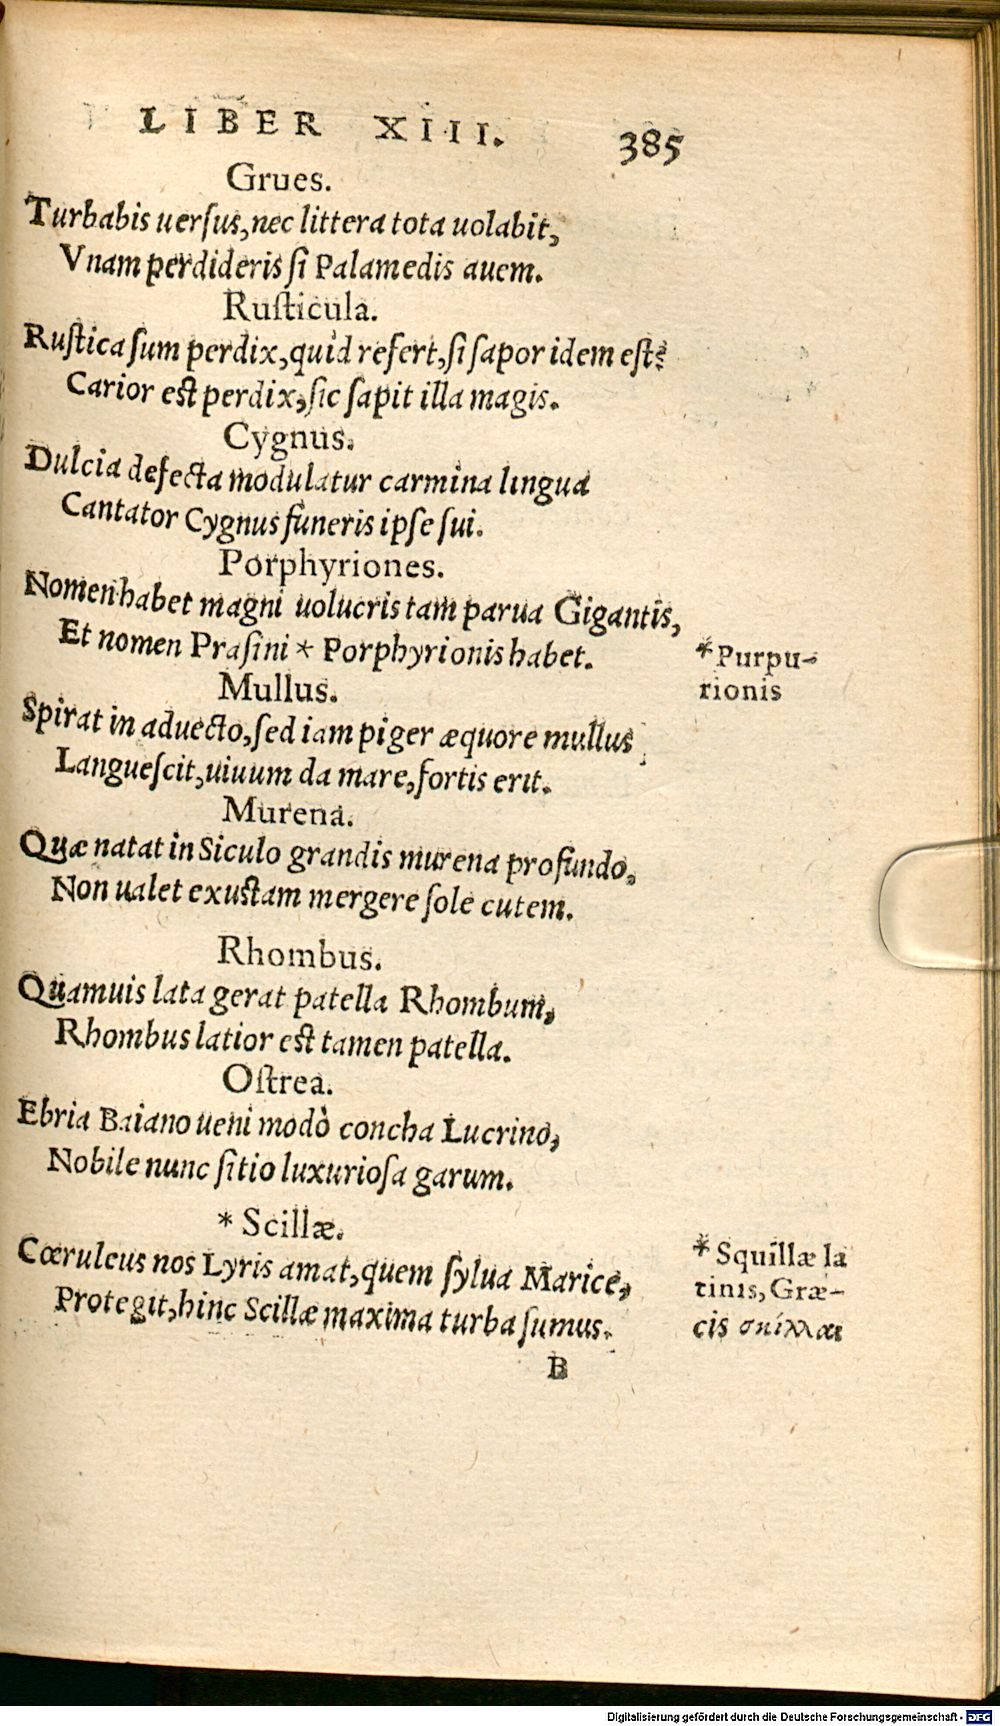 LIBER XIII. 385
Grues.
Turbabis uersus, nec littera tota uolabit,
Vnam perdideris si Palamedis auem.
Rusticula.
Rustica sum perdix, quid refert, si sapor idem est?
Carior est perdix, sic sapit illa magis.
Cygnus.
Dulcia defecta modulatur carmina lingua
Cantator Cygnus funeris ipse sui.
Porphyriones.
Nomen habet magni uolucris tam parua Gigantis,
Et nomen Prasini * Porphyrionis habet.
*Purpu-
rionis
Mullus.
Spirat in aduecto, sed iam piger æquore mullus
Languescit, uiuum da mare, fortis erit.
Murena.
Quæ natat in Siculo grandis murena profundo,
Non ualet exustam mergere sole cutem.
Rhombus.
Quamuis lata gerat patella Rhombum,
Rhombus latior est tamen patella.
Ostrea.
Ebria Baiano ueni modò concha Lucrino,
Nobile nunc sitio luxuriosa garum.
* Scillæ.
Cœruleus nos Lyris amat, quem sylua Marice,
Protegit, hinc Scillæ maxima turba sumus.
* Squillæ la
tinis, Græ-
cis σκίλλαι
B
Digitalisierung gefördert durch die Deutsche Forschungsgemeinschaft - DFG